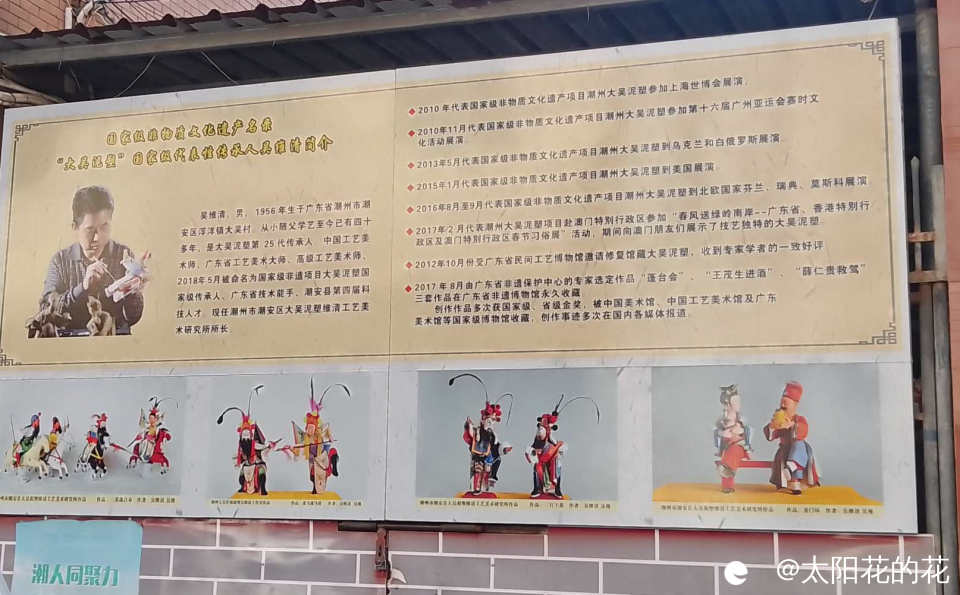 国家级非物质文化遗产名录
“大吴泥塑”国家级代表性传承人吴维清简介
吴维清，男，1956年生于广东省潮州市潮
安区浮洋镇大吴村。从小随父学艺至今已有四十
多年，是大吴泥塑第25代传承人 中国工艺美
术师、广东省工艺美术大师、高级工艺美术师、
2018年5月被命名为国家级非遗项目大吴泥塑国
家级传承人、广东省技术能手、潮安县第四届科
技人才。现任潮州市潮安区大吴泥塑维清工艺美
术研究所所长
2010年代表国家级非物质文化遗产项目潮州大吴泥塑参加上海世博会展演。
2010年11月代表国家级非物质文化遗产项目潮州大吴泥塑参加第十六届广州亚运会赛时文
化活动展演。
2013年5月代表国家级非物质文化遗产项目潮州大吴泥塑到乌克兰和白俄罗斯展演。
2015年1月代表国家级非物质文化遗产项目潮州大吴泥塑到美国展演。
2016年8月至9月代表国家级非物质文化遗产项目潮州大吴泥塑到北欧国家芬兰、瑞典、莫斯科展演
2017年2月代表潮州大吴泥塑项目赴澳门特别行政区参加“春风送绿岭南岸--广东省、香港特别行
政区及澳门特别行政区春节习俗展”活动，期间向澳门朋友们展示了技艺独特的大吴泥塑。
2012年10月份受广东省民间工艺博物馆邀请修复馆藏大吴泥塑，收到专家学者的一致好评
2017年8月由广东省非遗保护中心的专家选定作品“蓬台会”、“王茂生进酒”、“薛仁贵救驾”
三套作品在广东省非遗博物馆永久收藏。
创作作品多次获国家级、省级金奖，被中国美术馆、中国工艺美术馆及广东
美术馆等国家级博物馆收藏，创作事迹多次在国内各媒体报道。
潮人同聚力
@太阳花的花